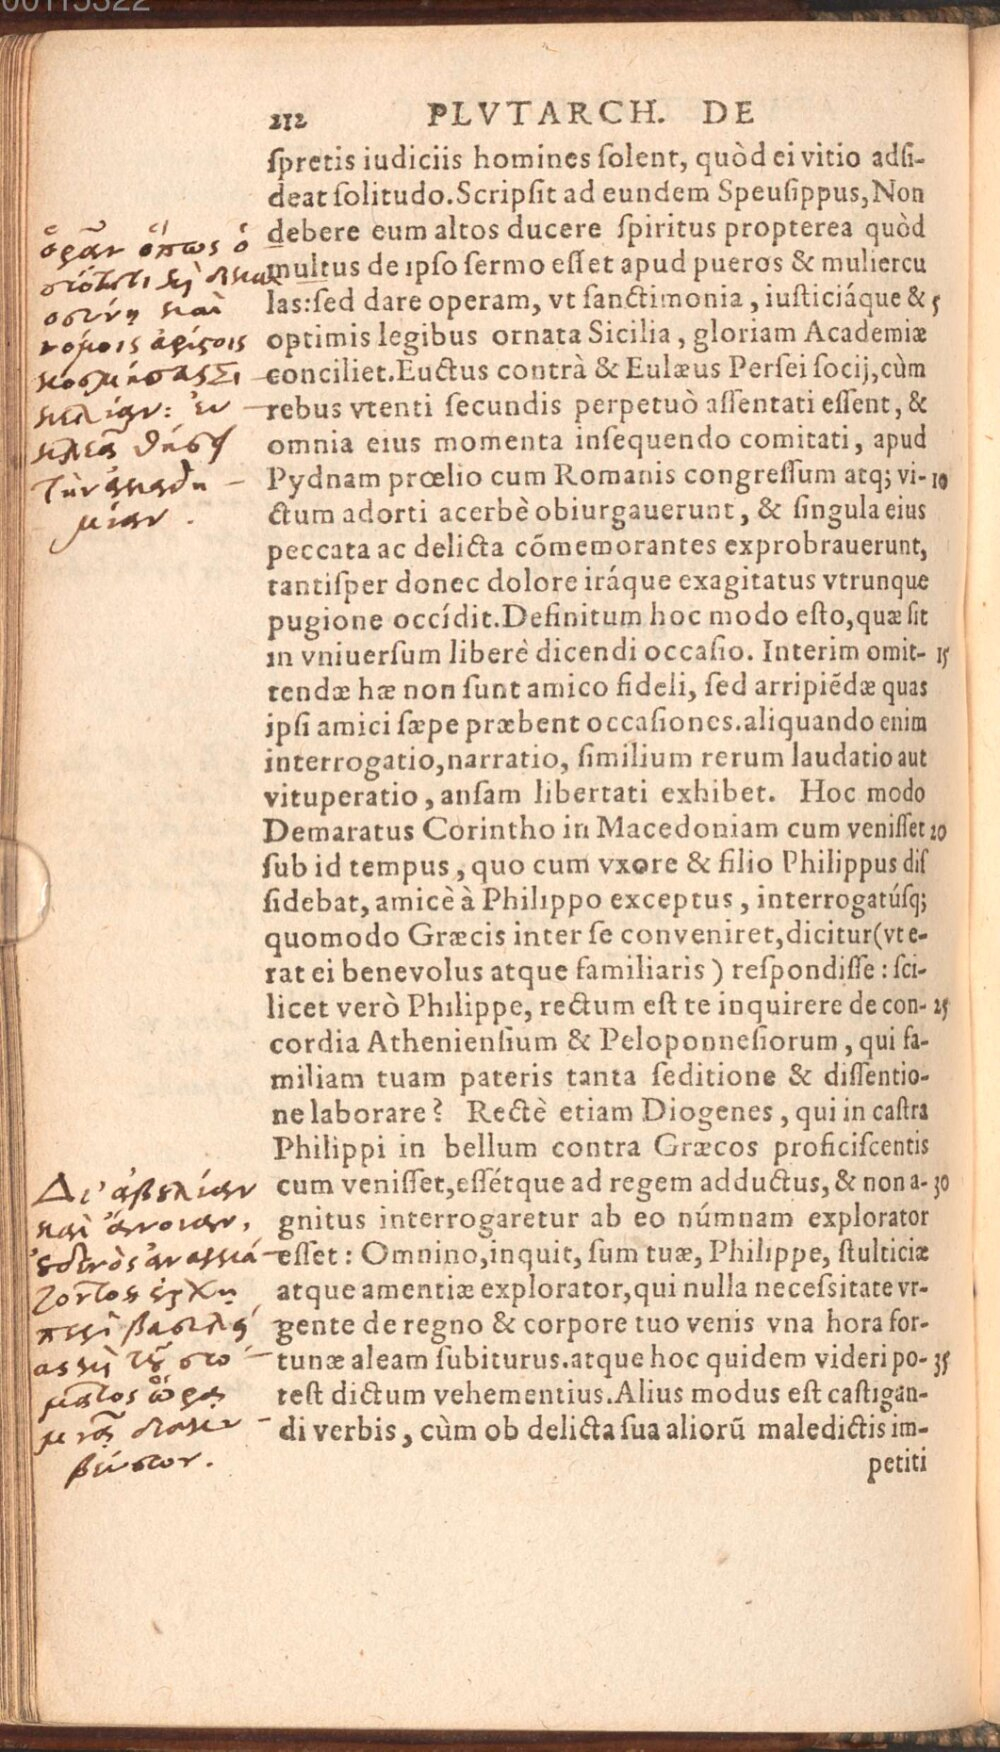 00115322
212 PLVTARCH. DE
ſpretis iudiciis homines ſolent, quòd ei vitio adſi-
deat ſolitudo. Scripſit ad eundem Speuſippus, Non
debere eum altos ducere ſpiritus propterea quòd
multus de ipſo ſermo eſſet apud pueros & muliercu
las: ſed dare operam, vt ſanctimonia, iuſticiáque & 5
optimis legibus ornata Sicilia, gloriam Academiæ
conciliet. Euctus contrà & Eulæus Perſei ſocij, cùm
rebus vtenti ſecundis perpetuò aſſentati eſſent, &
omnia eius momenta inſequendo comitati, apud
Pydnam prœlio cum Romanis congreſſum atq; vi- 10
ctum adorti acerbè obiurgauerunt, & ſingula eius
peccata ac delicta cõmemorantes exprobrauerunt,
tantiſper donec dolore iráque exagitatus vtrunque
pugione occídit. Definitum hoc modo eſto, quæ ſit
in vniuerſum liberè dicendi occaſio. Interim omit- 15
tendæ hæ non ſunt amico fideli, ſed arripiẽdæ quas
ipſi amici ſæpe præbent occaſiones. aliquando enim
interrogatio, narratio, ſimilium rerum laudatio aut
vituperatio, anſam libertati exhibet. Hoc modo
Demaratus Corintho in Macedoniam cum veniſſet 20
ſub id tempus, quo cum vxore & filio Philippus diſ
ſidebat, amicè à Philippo exceptus, interrogatúſq;
quomodo Græcis inter ſe conveniret, dicitur (vt e-
rat ei benevolus atque familiaris) reſpondiſſe: ſci-
licet verò Philippe, rectum eſt te inquirere de con- 25
cordia Athenienſium & Peloponneſiorum, qui fa-
miliam tuam pateris tanta ſeditione & diſſentio-
ne laborare? Rectè etiam Diogenes, qui in caſtra
Philippi in bellum contra Græcos proficiſcentis
cum veniſſet, eſſétque ad regem adductus, & non a- 30
gnitus interrogaretur ab eo númnam explorator
eſſet: Omnino, inquit, ſum tuæ, Philippe, ſtulticiæ
atque amentiæ explorator, qui nulla neceſsitate vr-
gente de regno & corpore tuo venis vna hora for-
tunæ aleam ſubiturus. atque hoc quidem videri po- 35
teſt dictum vehementius. Alius modus eſt caſtigan-
di verbis, cùm ob delicta ſua aliorũ maledictis im-
petiti
ὁρᾶν ὅπως ὁ
σιότητι κὴ δικαι
οσύνῃ καὶ
νόμοις ἀρίστοις
κοσμήσας Σι
κελίαν: ἐυ
κλεᾶ θήσῃ
τὴν ἀκαδη
μίαν.
Δι' ἀβελίαν
καὶ ἄνοιαν,
ουδενὸς ἀναγκά
ζοντος ἔρχῃ
περὶ βασιλεί
ας κὴ τοῦ σώ
ματος ὥρᾳ
μιᾷ διακυ
βεύσων.